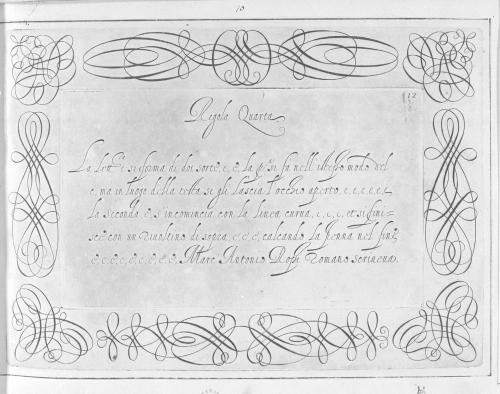 10
12
Regola Quarta
La lett.ª e, si forma di doi sorte, e, e, la p.ª si fa nell'istesso modo del
c, ma in luogo della testa se gli lascia l'occhio aperto, e, e, e, e, e,
la seconda, e, s'incomincia con la linea curva, ı, ı, ı, et si fini-
sce con un rivoltino di sopra, e, e, e, calcando la penna nel fine
e, e, e, e, e, e, e, e, Marc Antonio Rossi Romano scriveva.